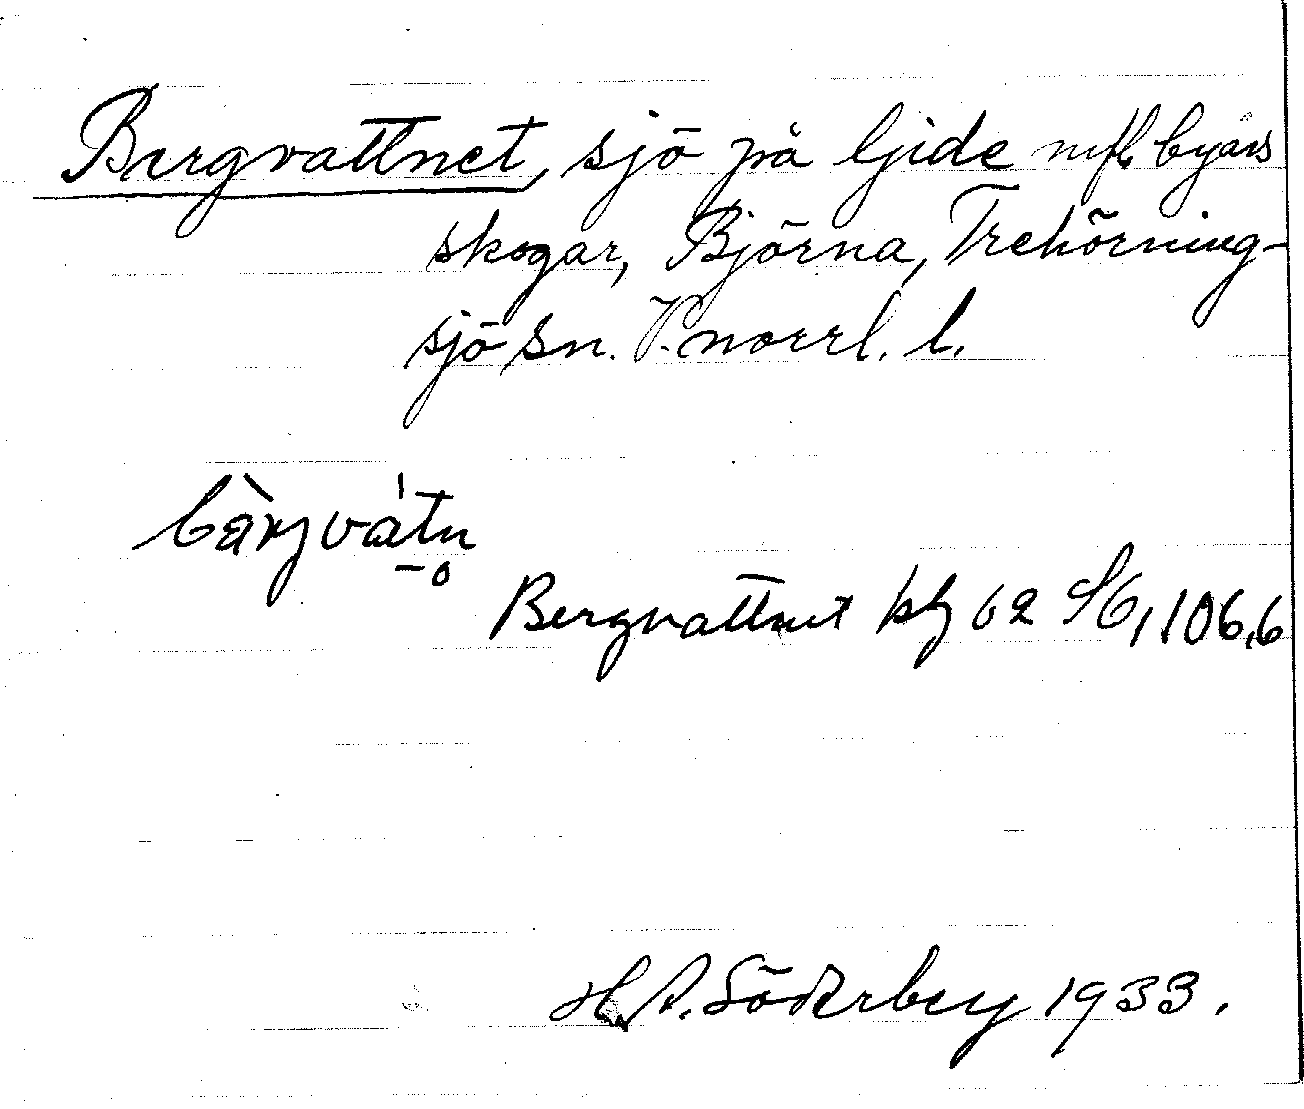 Bergvattnet, sjö på Ljide m fl byars
skogar, Björna, Trehörning-
sjö sn. V. norrl. l.
Bergvattnet kbl 62 S6, 106,6
H.A. Söderberg 1933.